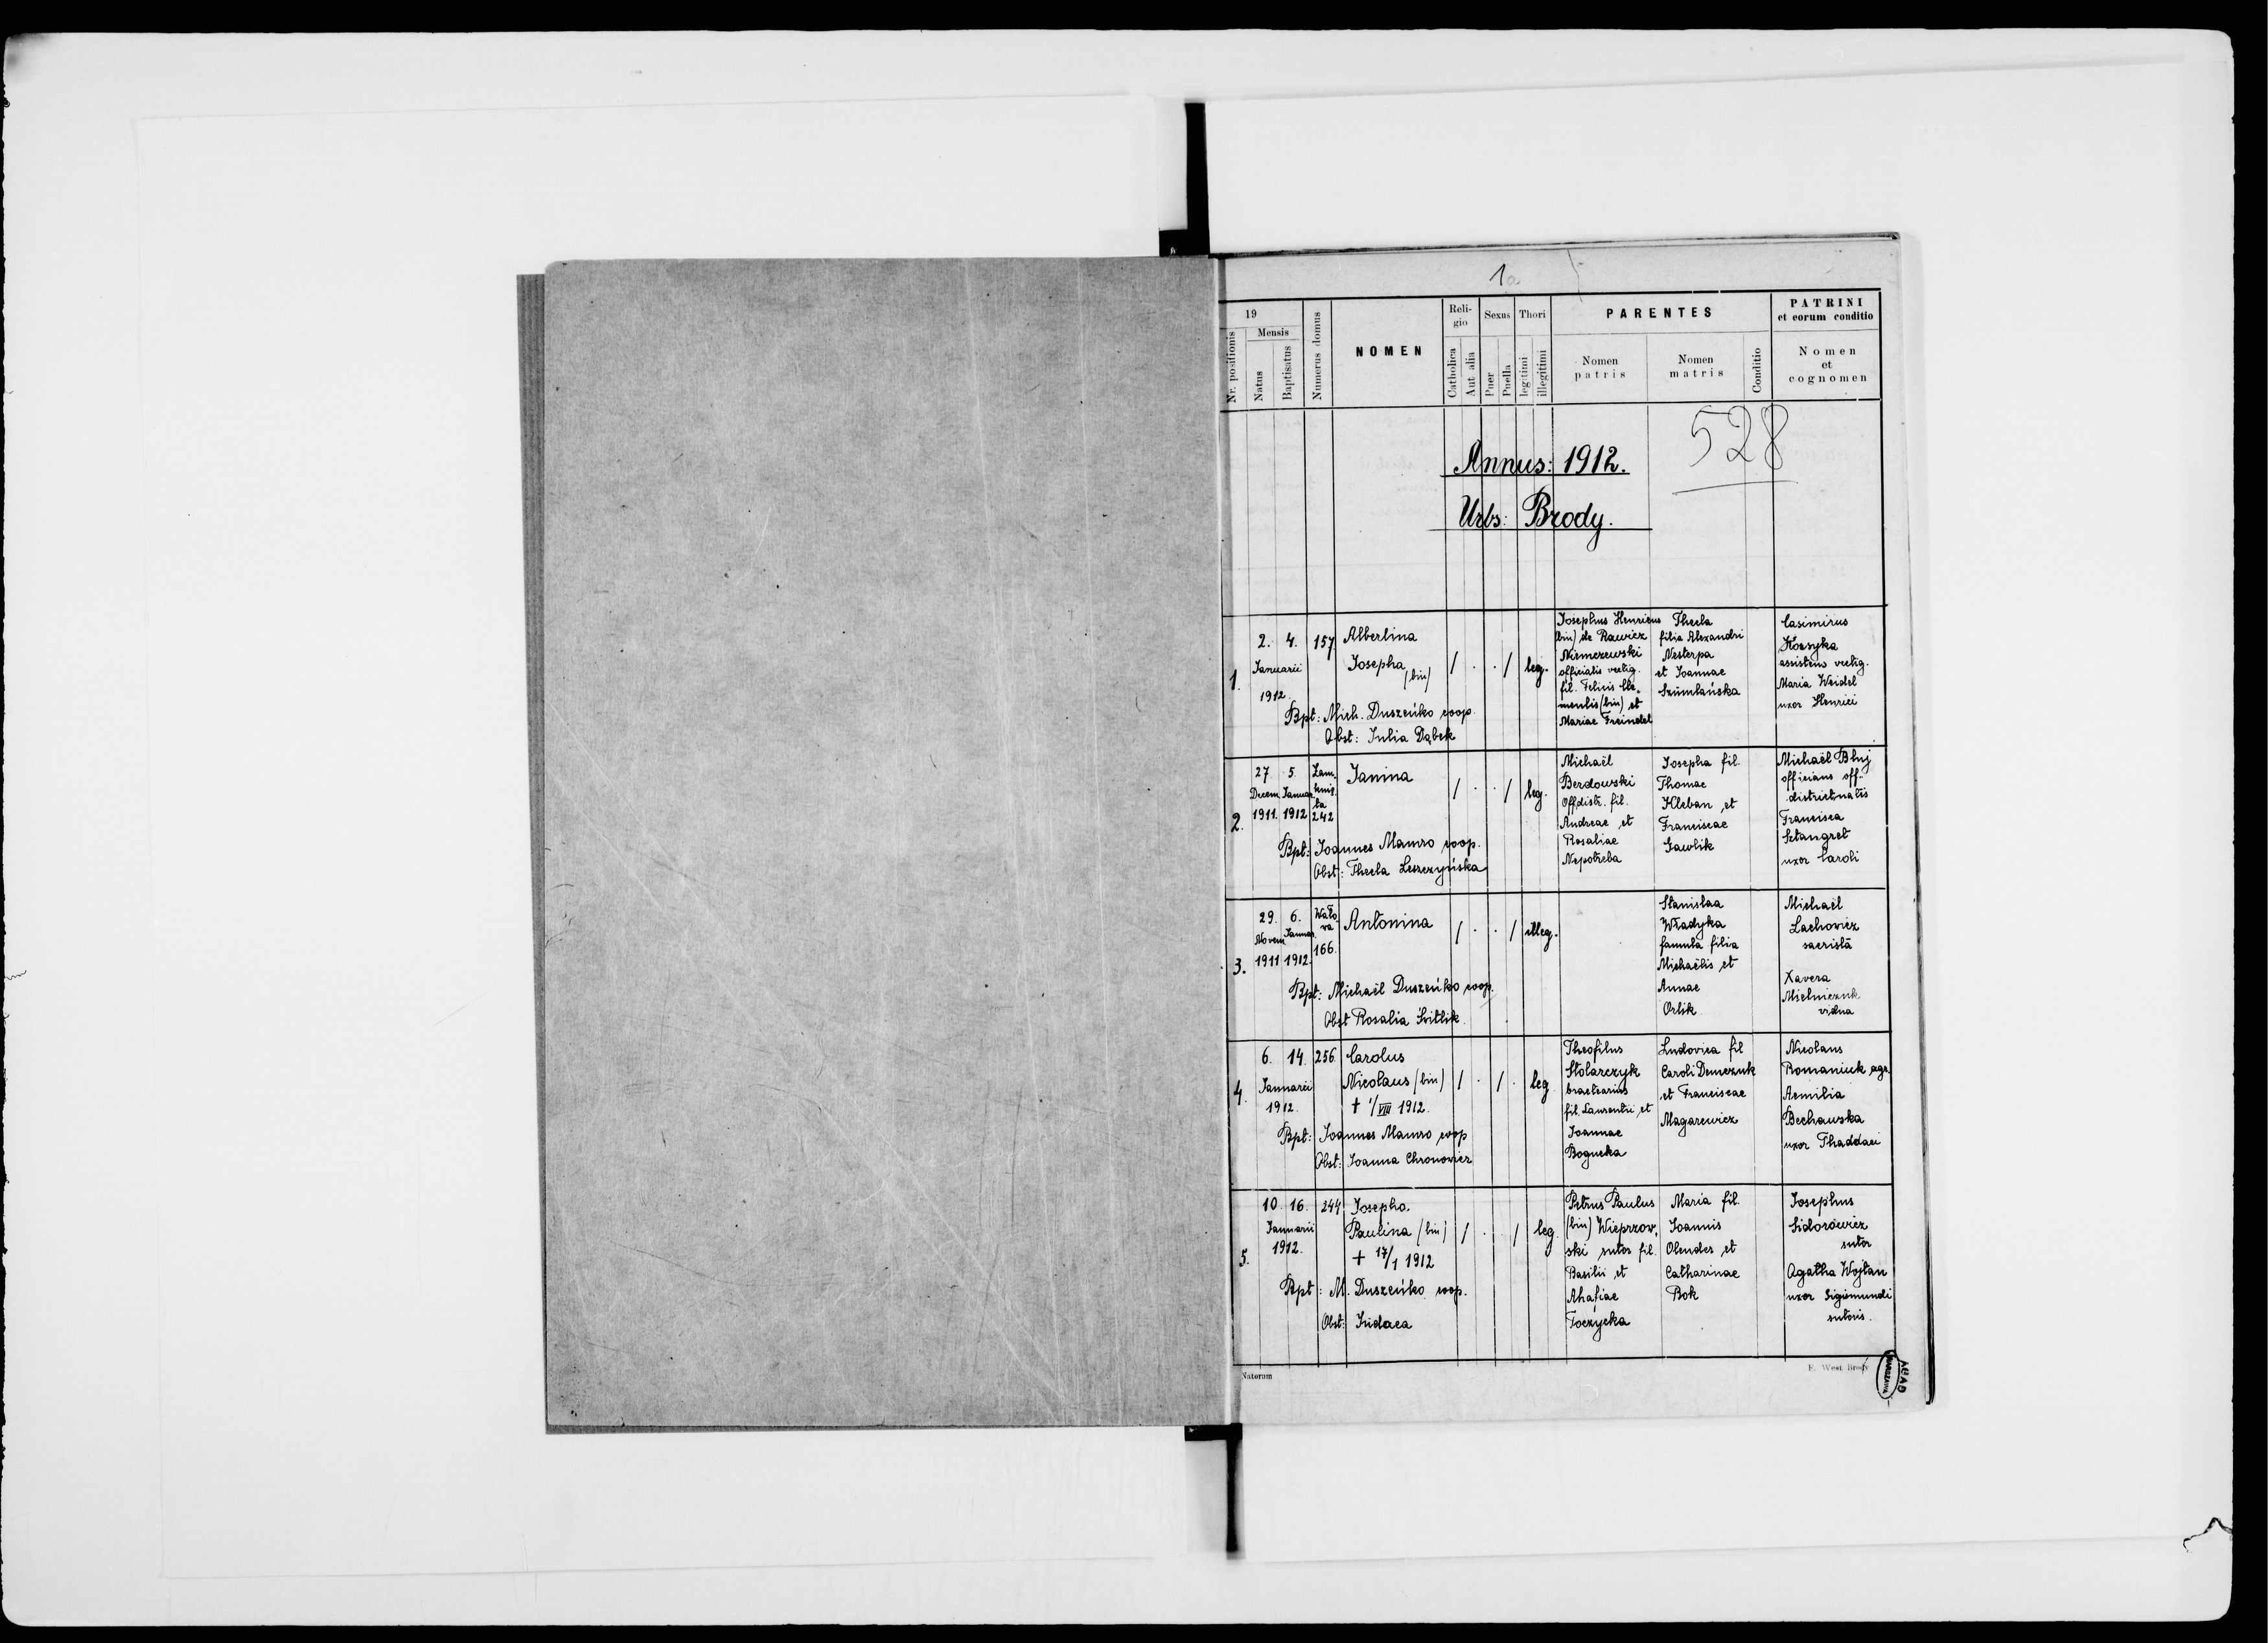 1a
19
Mensis
Nr. positionis
Natus
Baptisatus
Numerus domus
NOMEN
Religio
Catholica
Aut alia
Sexus
Puer
Puella
Thori
legitimi
illegitimi
PARENTES
Nomen patris
Nomen matris
Conditio
PATRINI
et eorum conditio
Nomen
et
cognomen
528
Annus: 1912.
Urbs: Brody.
1.
2. 4.
Januarii
1912.
157
Albertina
Josepha
(bin)
/ · · / leg.
Josephus Henricus
(bin) de Rawicz
Niemczewski
officialis vectig.
fil. Felicis Cle-
mentis (bin) et
Mariae Freindel
Thecla
filia Alexandri
Nesterpa
et Joannae
Szumlańska
Casimirus
Kossyka
assistens vectig.
Maria Weidel
uxor Henrici
Bpt: Mich. Duszeńko coop.
Obst: Julia Dąbek
2.
27. 5.
Decem. Januar.
1911. 1912
242
Janina
/ · · / leg.
Michaël
Berdowski
Offdistr. fil.
Andreae et
Rosaliae
Nepotreba
Josepha fil.
Thomae
Kleban et
Franciscae
Gawlik
Michaël Bluj
officians off.
districtualis
Francisca
Sztangret
uxor Caroli
Bpt: Joannes Mamro coop.
Obst: Thecla Leszczyńska
3.
29. 6.
Novem. Januar.
1911 1912.
Wało-
wa
166.
Antonina
/ · · / illeg.
Stanislaa
Władyka
famula filia
Michaëlis et
Annae
Orlik
Michaël
Lachowicz
sacrista
Xavera
Mielniczuk
vidua
Bpt: Michaël Duszeńko coop.
Obst Rosalia Świtlik
4.
6. 14.
Januarii
1912.
256
Carolus
Nicolaus (bin)
† 1/VIII 1912.
/ · / · leg
Theofilus
Stolarczyk
bractearius
fil. Laurentii et
Joannae
Bogucka
Ludovica fil
Caroli Demczuk
et Franciscae
Magarewicz
Nicolaus
Romaniuk agr.
Aemilia
Bechawska
uxor Thaddaei
Bpt: Joannes Mamro coop
Obst: Joanna Chronowicz
5.
10. 16.
Januarii
1912.
244
Josepha
Paulina (bin)
† 17/1 1912
/ · · / leg
Petrus Paulus
(bin) Wieprzow-
ski sutor fil.
Basilii et
Ahafiae
Toczycka
Maria fil.
Joannis
Olender et
Catharinae
Bok
Josephus
Sidorowicz
sutor
Agatha Wojtan
uxor Sigismundi
sutoris.
Bpt: M. Duszeńko coop.
Obst: Judaea
Natorum
F. West Brody
AGAD
WARSZAWA